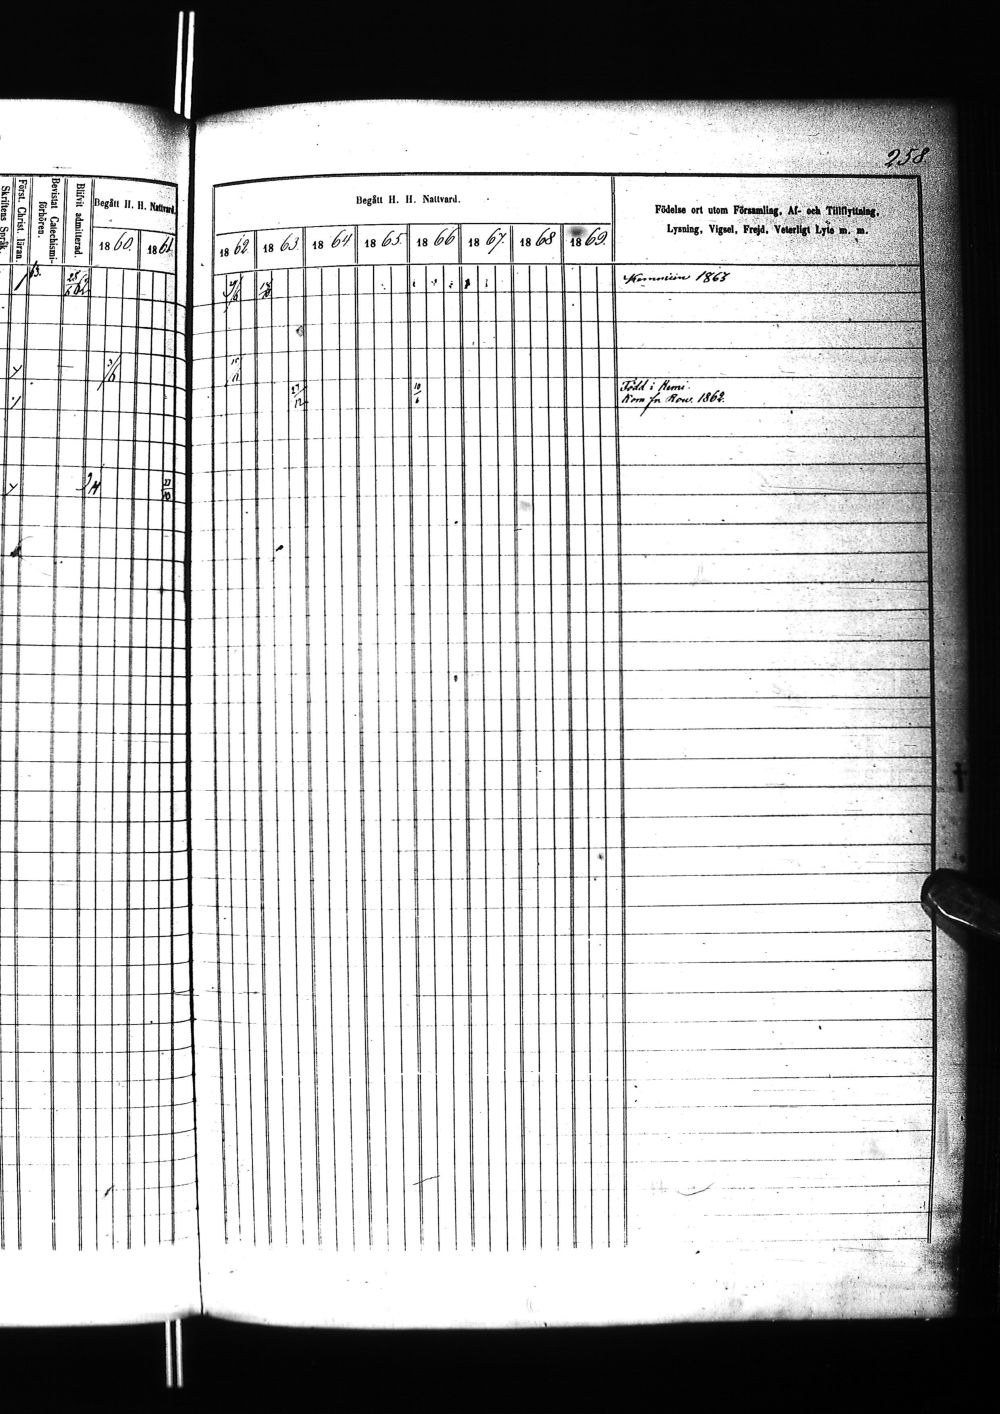 258
Skriftens Språk.
Först. Christ. läran.
Bevistat Catechismi-
förhören.
Blifvit admitterad.
Begått H. H. Nattvard.
1860. 1861.
Begått H. H. Nattvard.
1862. 1863. 1864 1865. 1866 1867. 1868 1869.
Födelse ort utom Församling, Af- och Tillflyttning,
Lysning, Vigsel, Frejd, Veterligt Lyte m. m.
63.
1863
3/6
15/11
27/12 10/6
Född i Kemi.
Kom fr Rov. 1862.
27/10